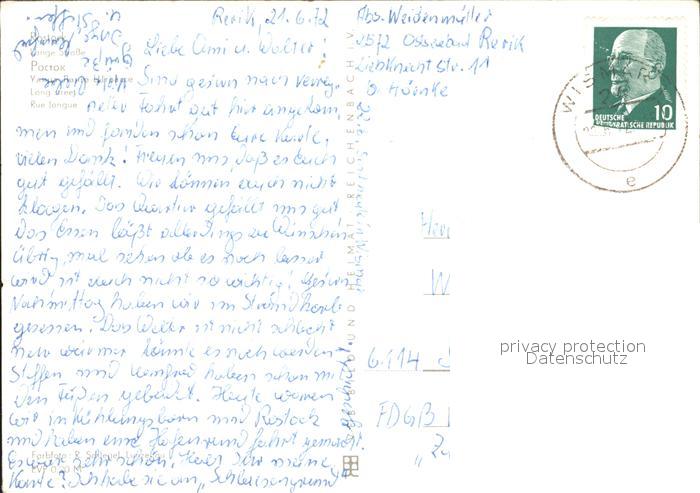 Rerik, 21.6.72
Liebe Omi u. Walter!
Sind gestern nach verreg-
neter Fahrt gut hier angekom-
men und fanden schon Eure Karte,
vielen Dank! Freuen uns, daß es Euch
gut gefällt. Wir können auch nicht
klagen. Das Quartier gefällt uns gut
Das Essen läßt allerdings zu Wünschen
übrig, mal sehen ob es noch besser
wird ist auch nicht so wichtig! Gestern
Nachmittag haben wir im Strandkorb
gesessen. Das Wetter ist nicht schlecht
nur wärmer könnte es noch werden
Steffen und haben schon mit
den Füßen gebadet. Heute waren
wir in Kühlungsborn und Rostock
und haben eine Hafenrundfahrt gemacht.
Es war sehr schön. Habt Ihr meine
Karte? Ich habe sie an „Schleusengrund"
geschickt!
u. Steffen
Rostock
Lange Straße
Росток
Long Street
Rue longue
Farbfoto:
EVP 0,20 M
BILD UND HEIMAT REICHENBACH I. V.
Abs. Weidenmüller
2572 Ostseebad Rerik
Liebknecht Str. 11
DEUTSCHE
DEMOKRATISCHE REPUBLIK
10
WISMAR
e
W
6114
FDGB
privacy protection
Datenschutz